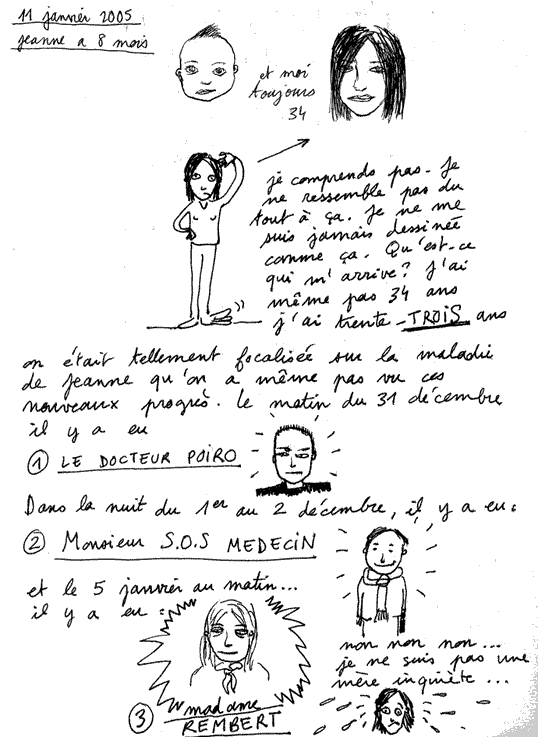 11 janvier 2005
jeanne a 8 mois
et moi
toujours
34
je comprends pas. Je
ne ressemble pas du
tout à ça. Je ne me
suis jamais dessinée
comme ça. Qu'est-ce
qui m'arrive ? J'ai
même pas 34 ans
j'ai trente-TROIS ans
on était tellement focalisée sur la maladie
de jeanne qu'on a même pas vu ces
nouveaux progrès. le matin du 31 décembre
il y a eu
① LE DOCTEUR POIRO
Dans la nuit du 1er au 2 décembre, il y a eu :
② Monsieur S.O.S MEDECIN
et le 5 janvier au matin...
il y a eu :
③ madame
REMBERT
non non non ...
je ne suis pas une
mère inquiète ...